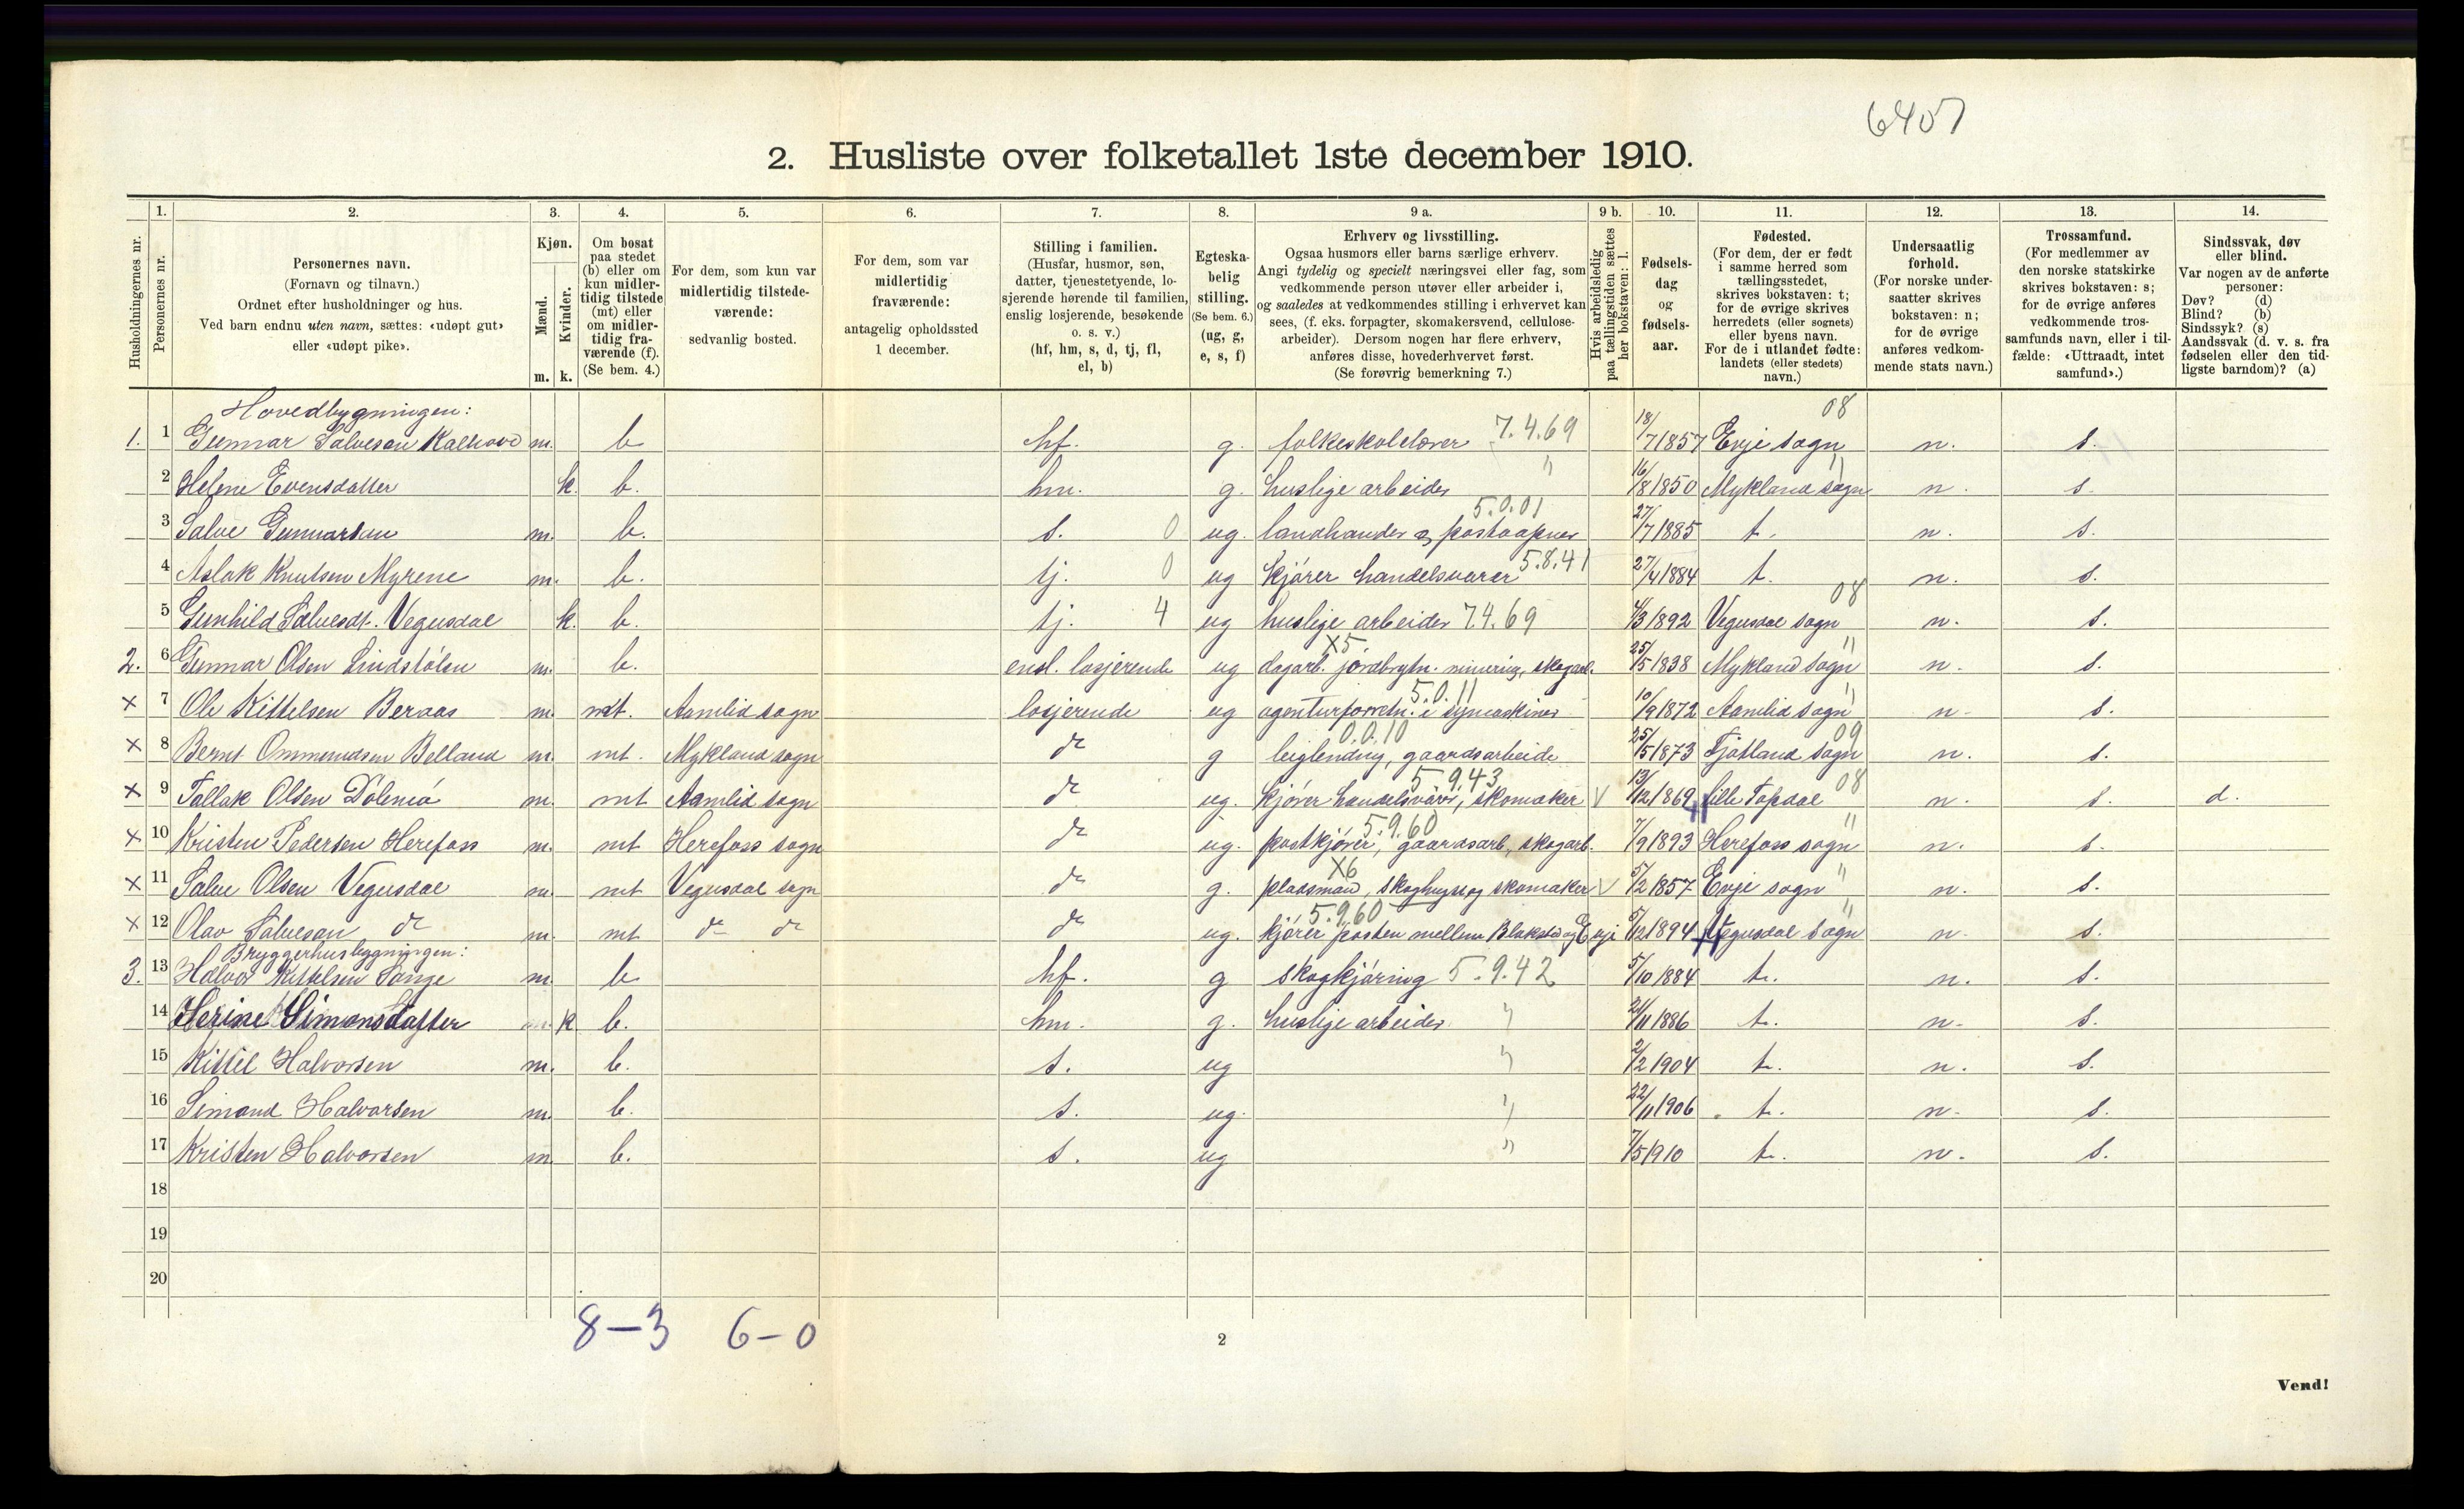 6407
2. Husliste over folketallet 1ste december 1910.
1. 2. 3. 4. 5. 6. 7. 8. 9 a. 9 b. 10. 11. 12. 13. 14.
Husholdningernes nr.
Personernes nr.
Personernes navn.
(Fornavn og tilnavn.)
Ordnet efter husholdninger og hus.
Ved barn endnu uten navn, sættes: «udøpt gut»
eller «udøpt pike».
Kjøn.
Mænd.
Kvinder.
m. k.
Om bosat
paa stedet
(b) eller om
kun midler-
tidig tilstede
(mt) eller
om midler-
tidig fra-
værende (f).
(Se bem. 4.)
For dem, som kun var
midlertidig tilstede-
værende:
sedvanlig bosted.
For dem, som var
midlertidig
fraværende:
antagelig opholdssted
1 december.
Stilling i familien.
(Husfar, husmor, søn,
datter, tjenestetyende, lo-
sjerende hørende til familien,
enslig losjerende, besøkende
o. s. v.)
(hf, hm, s, d, tj, fl,
el, b)
Egteska-
belig
stilling.
(Se bem. 6.)
(ug, g,
e, s, f)
Erhverv og livsstilling.
Ogsaa husmors eller barns særlige erhverv.
Angi tydelig og specielt næringsvei eller fag, som
vedkommende person utøver eller arbeider i,
og saaledes at vedkommendes stilling i erhvervet kan
sees, (f. eks. forpagter, skomakersvend, cellulose-
arbeider). Dersom nogen har flere erhverv,
anføres disse, hovederhvervet først.
(Se forøvrig bemerkning 7.)
Hvis arbeidsledig
paa tællingstiden sættes
her bokstaven: l.
Fødsels-
dag
og
fødsels-
aar.
Fødested.
(For dem, der er født
i samme herred som
tællingsstedet,
skrives bokstaven: t;
for de øvrige skrives
herredets (eller sognets)
eller byens navn.
For de i utlandet fødte:
landets (eller stedets)
navn.)
Undersaatlig
forhold.
(For norske under-
saatter skrives
bokstaven: n;
for de øvrige
anføres vedkom-
mende stats navn.)
Trossamfund.
(For medlemmer av
den norske statskirke
skrives bokstaven: s;
for de øvrige anføres
vedkommende tros-
samfunds navn, eller i til-
fælde: «Uttraadt, intet
samfund».)
Sindssvak, døv
eller blind.
Var nogen av de anførte
personer:
Døv? (d)
Blind? (b)
Sindssyk? (s)
Aandssvak (d. v. s. fra
fødselen eller den tid-
ligste barndom)? (a)
Hovedbygningen: 08
1. 1 Gunnar Salvesen Kalhovd m. b hf. g. folkeskolelærer 7.4.69 18/7 1857 Evje sogn n. s.
2 Helene Evensdatter k. b. hm. g. huslige arbeider " 16/8 1850 Mykland sogn " n. s.
3 Salve Gunnarsen m. b. s. 0 ug. landhandler & postaapner 5.0.01 27/7 1885 t. n. s.
4 Aslak Knutsen Myrene m. b. tj. 0 ug kjører handelsvarer 5.8.41 27/4 1884 t. n. s.
5 Gunhild Salvesdt. Vegusdal k. b. tj. 4 ug huslige arbeider 7.4.69 4/3 1892 Vegusdal sogn 08 n. s.
2. 6 Gunnar Olsen Lindstølen m. b. ensl. losjerende ug dagarb. jordbrytn. minering, skogarb. X5. 25/5 1838 Mykland sogn " n. s.
× 7 Ole Kittelsen Beraas m. mt. Aamlid sogn losjerende ug agenturforretn. i symaskiner 5.0.11 10/9 1872 Aamlid sogn " n. s.
× 8 Bernt Ommundsen Belland m. mt. Mykland sogn do g leiglending, gaardsarbeide 0.0.10 25/5 1873 Fjotland sogn 09 n. s.
× 9 Tallak Olsen Dølemo m. mt Aamlid sogn do ug. kjører handelsvarer, skomaker 5.9.43 V 13/12 1869 lille Topdal 08 n. s. d.
× 10 Kristen Pedersen Herefoss m. mt Herefoss sogn do ug. postkjører, gaardsarb., skogarb. 5.9.60 7/9 1893 Herefoss sogn " n. s.
× 11 Salve Olsen Vegusdal m. mt Vegusdal sogn do g. pladsmand, skoghugst og skomaker X6 V 5/2 1857 Evje sogn " n. s.
× 12 Olav Salvesen do m. mt do do do ug. kjører posten mellem Blakstad og Evje 5.9.60 5/12 1894 Vegusdal sogn " n. s.
Bryggerhusbygningen:
3. 13 Halvor Kittelsen Tange m. b hf. g skogkjøring 5.9.42 5/10 1884 t. n. s.
14 Herine Simonsdatter k b. hm. g. huslige arbeider " 24/11 1886 t. n. s.
15 Kittel Halvorsen m. b. s. ug " 2/2 1904 t. n. s.
16 Simond Halvorsen m. b. s. ug. " 22/11 1906 t. n. s.
17 Kristen Halvorsen m b. s. ug " 7/5 1910 t. n. s.
18
19
20
8—3 6—0
2
Vend!